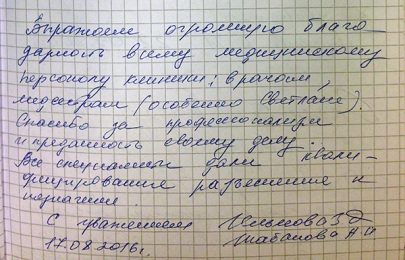 Выражаем огромную благо-
дарность всему медицинскому
персоналу клиники; врачам,
медсестрам (особенно Светлане).
Спасибо за профессионализм
и преданность своему делу.
Все специалисты дали квали-
фицированные разъяснения и
назначения.
С уважением
17.08.2016г. Шабанова Н.И